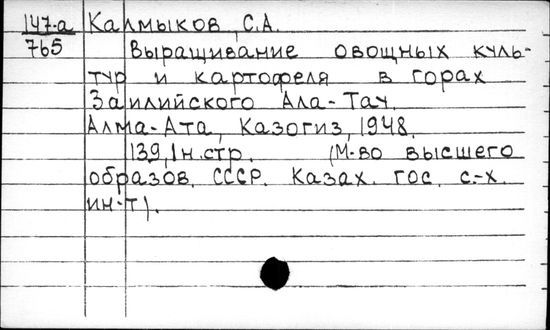 147-а Калмыков, С.А.
765 Выращивание овощных куль-
тур и картофеля в горах
Заилийского Ала-Тау.
Алма-Ата, Казогиз, 1948.
139,1н.стр. (М-во высшего
образов. СССР. Казах. гос. с.-х.
ин-т).